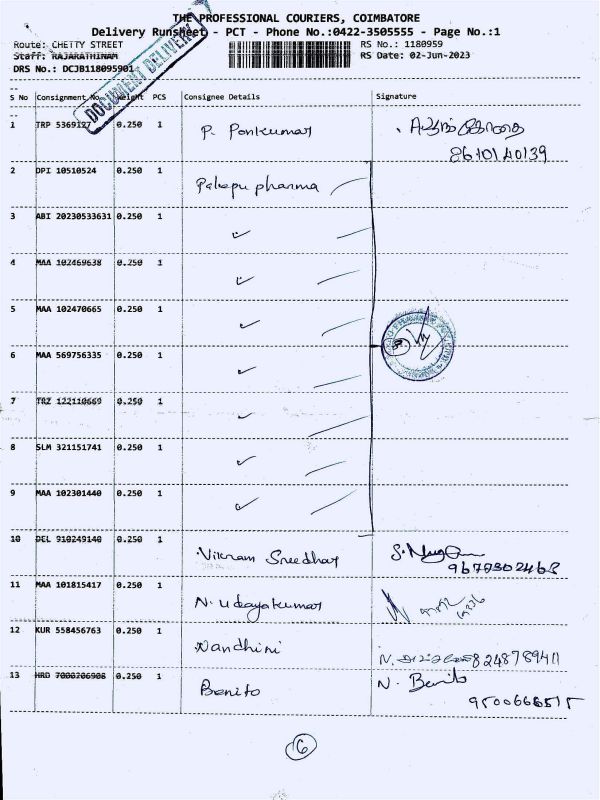 THE PROFESSIONAL COURIERS, COIMBATORE
Delivery Runsheet - PCT - Phone No.:0422-3505555 - Page No.:1
Route: CHETTY STREET RS No.: 1180959
Staff: RAJARATHINAM RS Date: 02-Jun-2023
DRS No.: DCJB118095901
DOCUMENT DELIVERY
S No Consignment No. Weight PCS Consignee Details Signature
1 TRP 5369127 0.250 1 P. Ponkumar
8610140139
2 DPI 10510524 0.250 1 pharma
3 ABI 20230533631 0.250 1 ✓
4 MAA 102469638 0.250 1 ✓
5 MAA 102470665 0.250 1 ✓
6 MAA 569756335 0.250 1 ✓
7 TRZ 122110669 0.250 1 ✓
8 SLM 321151741 0.250 1 ✓
9 MAA 102301440 0.250 1 ✓
10 DEL 910249140 0.250 1 Vikram Sreedhar
11 MAA 101815417 0.250 1 N. Udayakumar
12 KUR 558456763 0.250 1 Nandhini N. 8248789411
13 HRD 7000206908 0.250 1 Benito N. Benito
9500666515
16